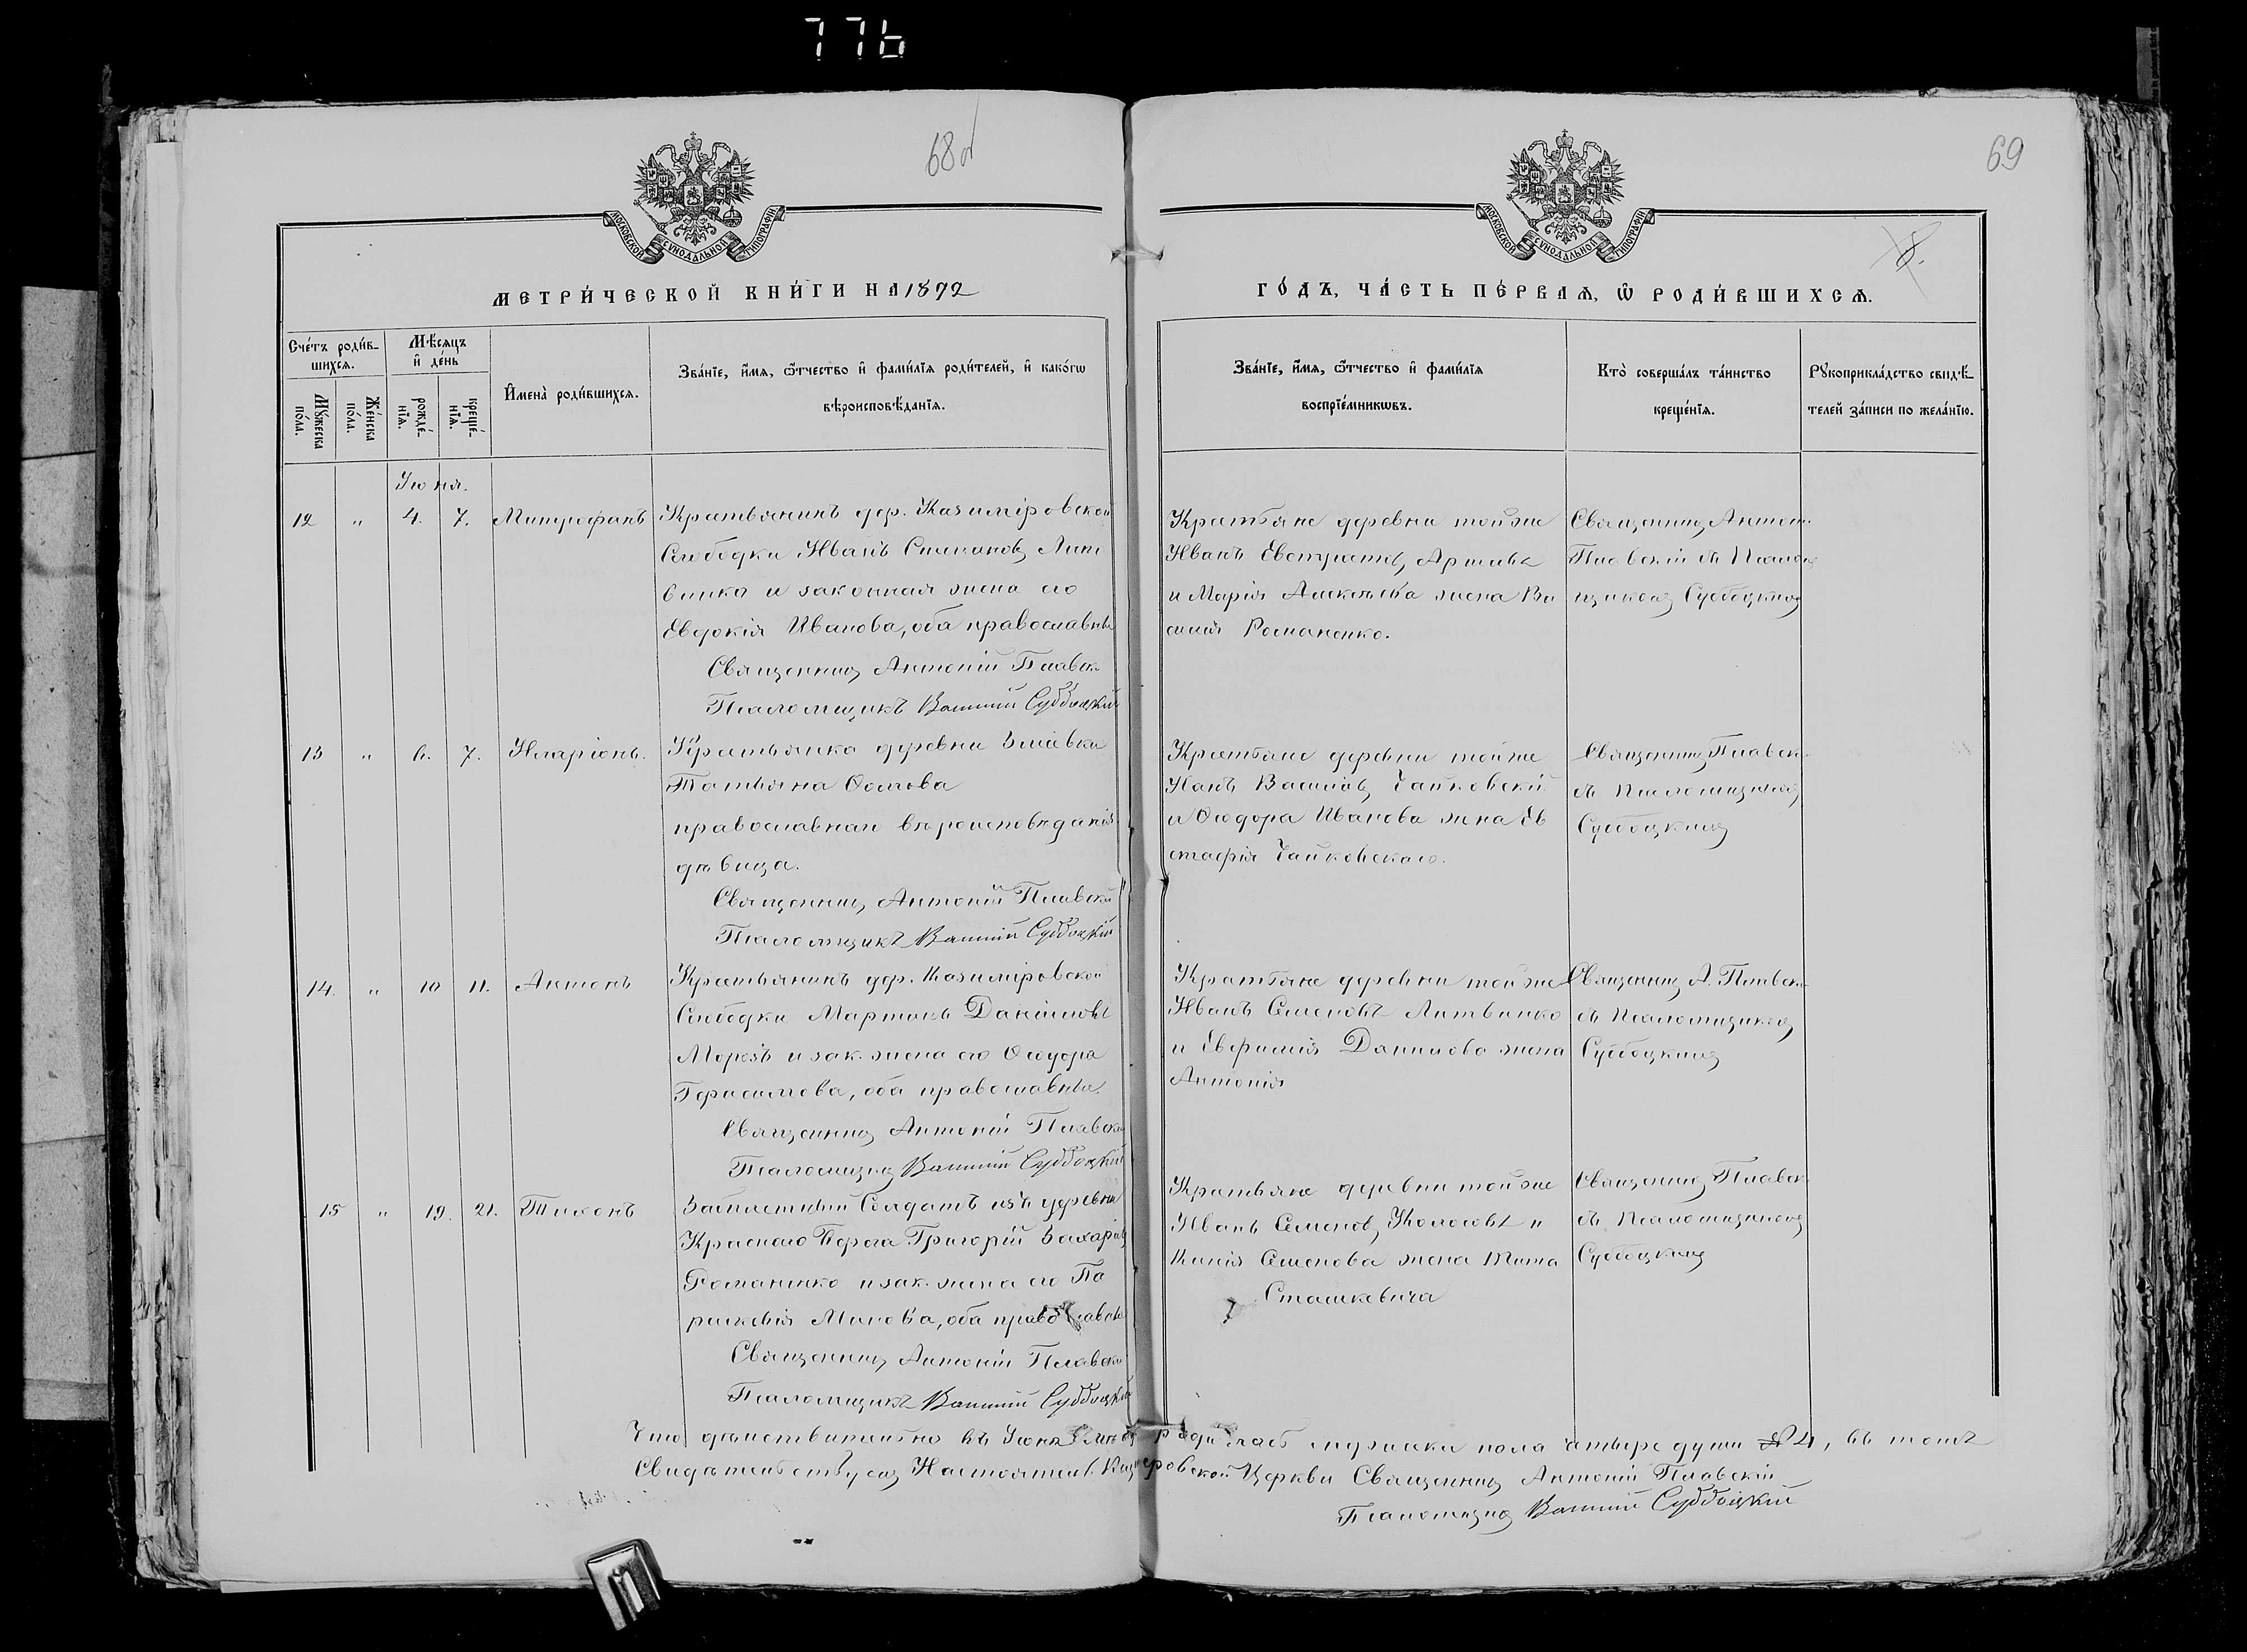 776
68 об
69
МОСКОВСКОЙ СѴНОДАЛЬНОЙ ТИПОГРАФІИ
МОСКОВСКОЙ СѴНОДАЛЬНОЙ ТИПОГРАФІИ
8.
МЕТРИ́ЧЕСКОЙ КНИ́ГИ НА 1892
ГО́ДЪ, ЧА́СТЬ ПЕ́РВАѦ, Ѡ҆ РОДИ́ВШИХСѦ.
Сче́тъ роди́вшихсѧ.
Мꙋ́жеска по́ла.
Же́нска по́ла.
Мѣ́сѧцъ и҆ де́нь
рожде́нїѧ.
креще́нїѧ.
И҆мена̀ роди́вшихсѧ.
Зва́нїе, и҆́мѧ, ѻ҆́тчество и҆ фами́лїѧ роди́телей, и҆ како́гѡ
вѣроисповѣ́данїѧ.
Зва́нїе, и҆́мѧ, ѻ҆́тчество и҆ фами́лїѧ
воспрїе́мникѡвъ.
Кто̀ соверша́лъ та́инство
креще́нїѧ.
Рꙋкоприкла́дство свидѣ́-
телей за́писи по жела́нїю.
Іюня.
12 " 4. 7. Митрофанъ
Крестьянинъ дер. Казиміровской
Слободки Иванъ Степановъ Лит
винко и законная жена его
Евдокія Иванова, оба православные
Священникъ Антоній Плавск
Псаломщикъ Василій Субботскій
Крестьяне деревни той же
Иванъ Евстратов
и Марія Алексѣева жена Ва
силія Романенко.
Священникъ Антон.
Плавскій съ Псалом
щикомъ Субботскимъ
13 " 6. 7. Иларіонъ.
Крестьянка деревни
Татьяна
православнаго вѣроисповѣданія
дѣвица.
Священникъ Антоній Плавскі
Псаломщикъ Василій Субботскій
Крестьяне деревни той же
Иванъ Васильевъ Чайковскій
и Ѳеодора Иванова жена Ев
стафія Чайковскаго.
Священникъ Плавск
съ Псаломщикомъ
Субботскимъ
14. " 10 11. Антонъ
Крестьянинъ дер. Казиміровской
Слободки Мартинъ Даниловъ
Морозъ и зак. жена его Ѳеодора
Герасимова, оба православные.
Священникъ Антоній Плавскі
Псаломщикъ Василій Субботскій
Крестьяне деревни той же
Иванъ Семеновъ Литвинко
и Евфимія Данилова жена
Антонія
Священникъ А. Плавск
съ Псаломщикомъ
Субботскимъ
15 " 19. 21. Тихонъ
Солдатъ изъ деревни
Краснаго Берега Григорій Захаріевъ
Романенко и зак. жена его Па
раскевія Минова, оба православные
Священникъ Антоній Плавскі
Псаломщикъ Василій Субботскій
Крестьяне деревни той же
Иванъ Семеновъ Колосовъ и
Ксенія Семенова жена Тита
Сташкевича
Священникъ Плавск
съ Псаломщикомъ
Субботскимъ
Что дѣйствительно въ Іюнѣ родилось мужска пола четыре души 4, въ томъ
Свидѣтельствуемъ Настоятель Казиміровской Церкви Священникъ Антоній Плавскій
Псаломщикъ Василій Субботскій